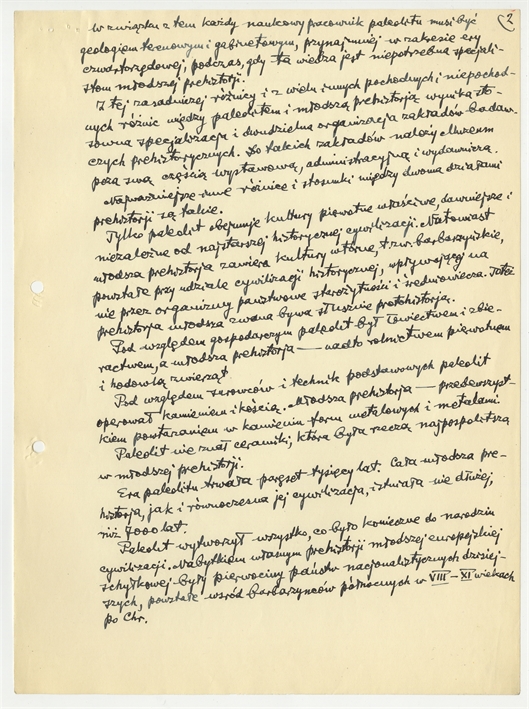 2
W związku z tem każdy naukowy pracownik paleolitu musi być
geologiem terenowym i gabinetowym, przynajmniej w zakresie ery
czwartorzędowej, podczas, gdy ta wiedza jest niepotrzebna specjali-
stom młodszej prehistorji.
Z tej zasadniczej różnicy i z wielu innych pochodnych i niepochod-
nych różnic między paleolitem i młodszą prehistorją wynika sto-
sowna specjalizacja i dwudzielna organizacja zakładów badaw-
czych prehistorycznych. Do takich zakładów należy Muzeum
poza swą częścią wystawową, administracyjną i wydawniczą.
Najważniejsze inne różnice i stosunki między dwoma działami
prehistorji są takie.
Tylko paleolit obejmuje kultury pierwotne właściwe, dawniejsze i
niezależne od najstarszej historycznej cywilizacji. Natomiast
młodsza prehistorja zawiera kultury wtórne, tzw. barbarzyńskie,
powstałe przy udziale cywilizacji historycznej, wpływającej na
nie przez organizmy państwowe starożytności i średniowiecza. Też
prehistorja młodsza zwana bywa słusznie protohistorją.
Pod względem gospodarczym paleolit był łowiectwem i zbie-
ractwem, a młodsza prehistorja — nadto rolnictwem pierwotnem
i hodowlą zwierząt.
Pod względem surowców i technik podstawowych paleolit
operował kamieniem i kością. Młodsza prehistorja — przedewszyst-
kiem powtarzaniem w kamieniu form metalowych i metalami
Paleolit nie znał ceramiki, która była rzeczą najpospolitszą
w młodszej prehistorji.
Era paleolitu trwała paręset tysięcy lat. Cała młodsza pre-
historja, jak i równoczesna jej cywilizacja, istniała nie dłużej,
niż 7000 lat.
Paleolit wytworzył wszystko, co było konieczne do narodzin
cywilizacji. Nabytkiem własnym prehistorji młodszej europejskiej
schyłkowej były pierwociny państw nacjonalistycznych dzisiej-
szych, powstałe wśród barbarzyńców północnych w VIII – XI wiekach
po Chr.